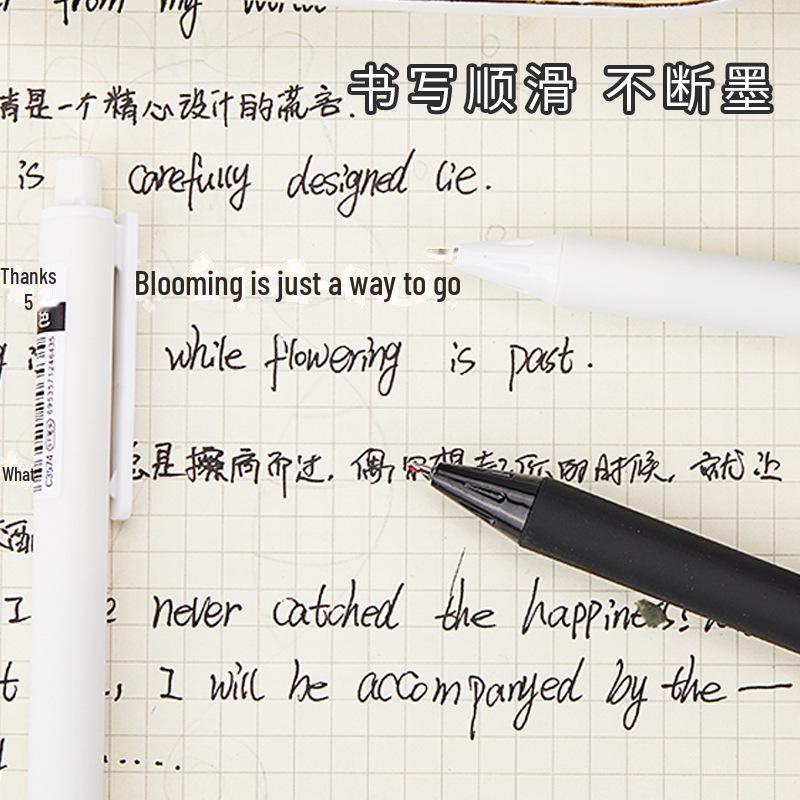 from my world
书写顺滑 不断墨
情是一个精心设计的谎言.
is carefully designed lie.
Thanks
5
Blooming is just a way to go
6953571246435
while flowering is past.
C3574
What
总是擦肩而过, 偶 想起你的时候, 就让
I never catched the happiness
I will be accompanyed by the —